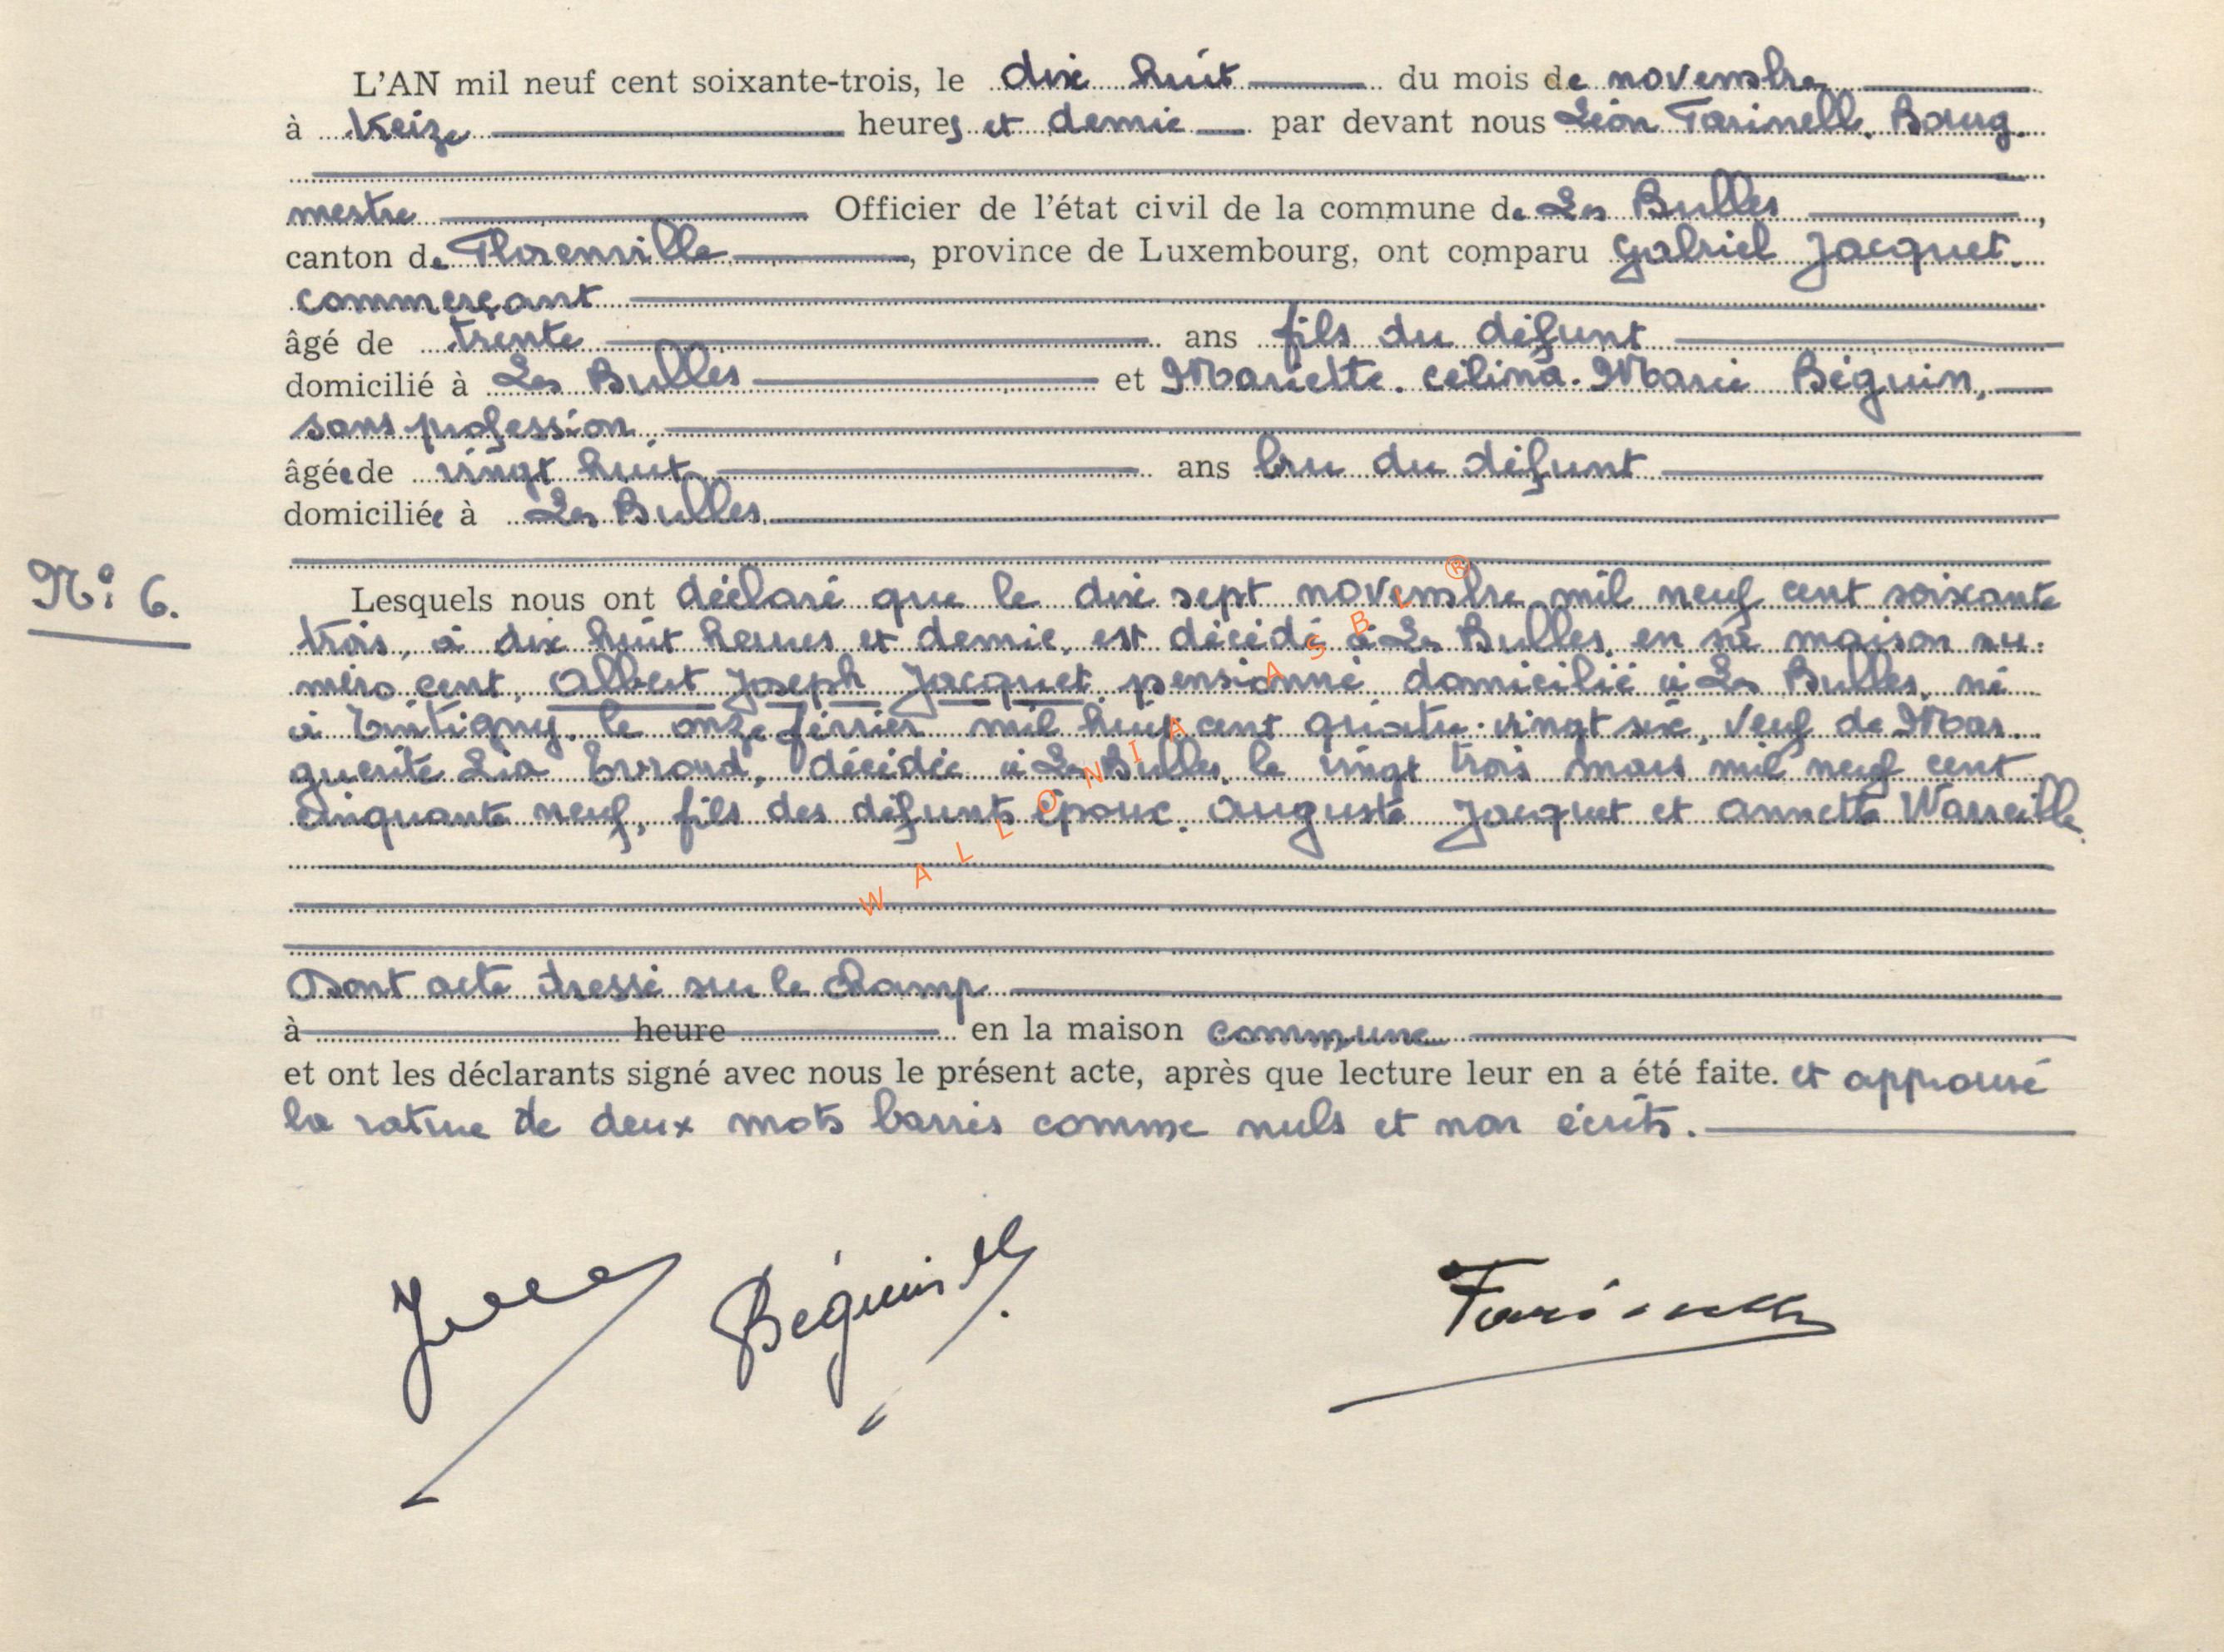 L'AN mil neuf cent soixante-trois, le dix huit du mois de novembre
à treize heures et demie par devant nous Léon Farinelle, Bourg-
mestre Officier de l'état civil de la commune de Les Bulles,
canton de Florenville, province de Luxembourg, ont comparu Gabriel Jacquet,
commerçant
âgé de trente ans fils du défunt
domicilié à Les Bulles et Mariette. Célina. Marie Béguin,
sans profession,
âgée de vingt huit ans bru du défunt
domiciliée à Les Bulles
N° 6.
Lesquels nous ont déclaré que le dix sept novembre mil neuf cent soixante
trois, à dix huit heures et demie, est décédé à Les Bulles, en sa maison nu-
méro cent, Albert Joseph Jacquet, pensionné domicilié à Les Bulles, né
à Tintigny, le onze février mil huit cent quatre-vingt six, veuf de Mar-
guerite Lia Evrard, décédée à Les Bulles, le vingt trois mars mil neuf cent
cinquante neuf, fils des défunts époux, Auguste Jacquet et Annette
Dont acte dressé sur le champ
à heure en la maison commune
et ont les déclarants signé avec nous le présent acte, après que lecture leur en a été faite. et approuvé
la rature de deux mots barrés comme nuls et non écrits.
Béguin M
Farinelle
WALLONIA ASBL ®